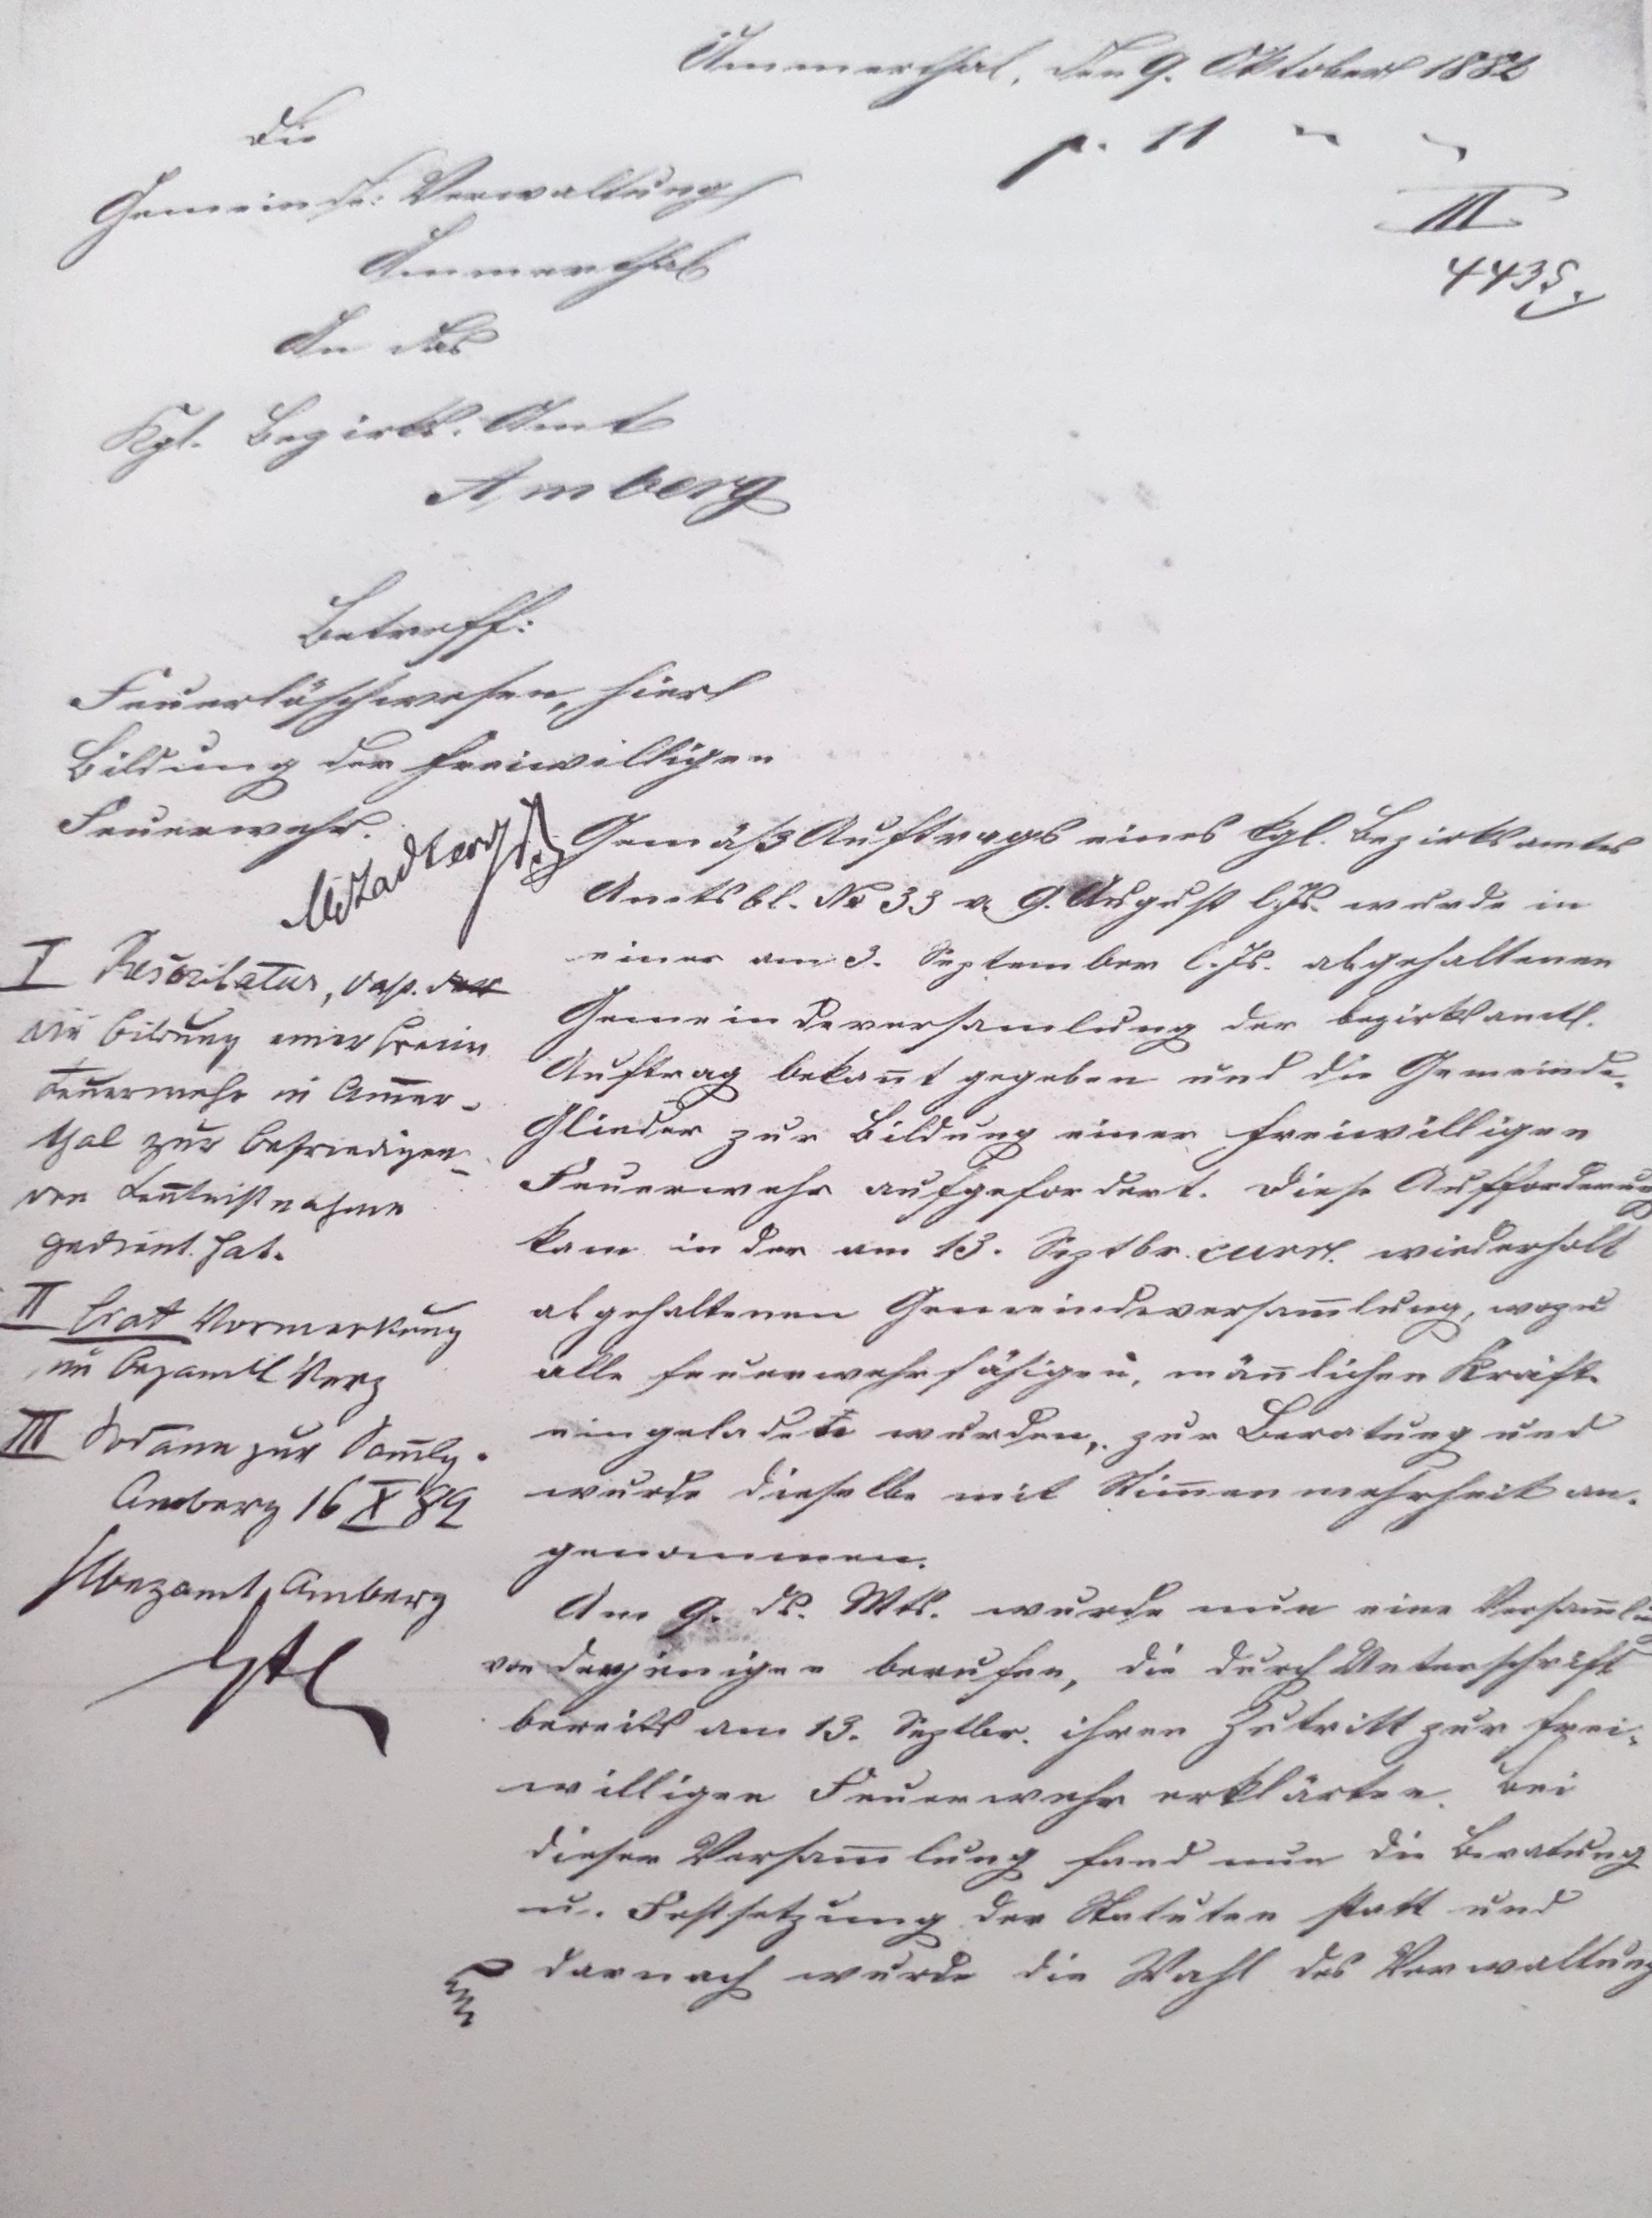 Ammerthal, den 9. Oktober 1882
p. 11 " "
III
4435.
Die
Gemeinde: Verwaltung
Ammerthal
An das
Kgl. Bezirks. Amt
Amberg
Betreff:
Feuerlöschwesen, hier
Bildung der freiwilligen
Feuerwehr.
Gemäß Auftrags eines kgl. Bezirksamtes
Amtsbl. No 33 v. 9. August l. Js. wurde in
einer am 3. September l. Js. abgehaltenen
Gemeindeversamlung der bezirksamtl.
Auftrag bekan̅t gegeben und die Gemeinde-
Glieder zur Bildung einer freiwilligen
Feuerwehr aufgefordert. Diese Aufforderung
kam in der am 13. Septbr. curr. wiederholt
abgehaltenen Gemeindeversam̅lung, wozu
alle feuerwehrfähigen, män̅lichen Kräfte
eingeladen wurden, zur Beratung und
wurde dieselbe mit Stim̅enmehrheit an-
genommen.
Am 9. ds. Mts. wurde nun eine Versam̅lung
von denjenigen berufen, die durch Unterschrift
bereits am 13. Septbr. ihren Zutritt zur frei-
willigen Feuerwehr erklärten. Bei
dieser Versam̅lung fand nun die Beratung
u. Festsetzung der Statuten statt und
darnach wurde die Wahl des Verwaltung
I Rescribatur, daß
die Bildung einer freiw
Feuerwehr in Am̅er-
thal zur befriedigen-
den Ken̅tnißnahme
gedient hat.
II Fiat Vormerkung
im bezamtl Verz
III Sodann zur Sam̅lg.
Amberg 16 X 82
Bezamt Amberg